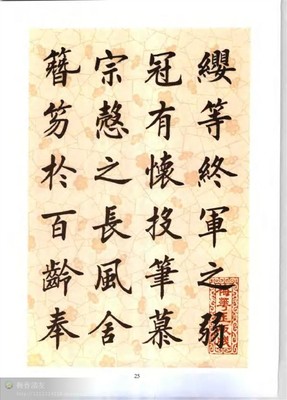 纓等終軍之弱
冠有懷投筆慕
宗慤之長風舍
簪笏於百齡奉
25